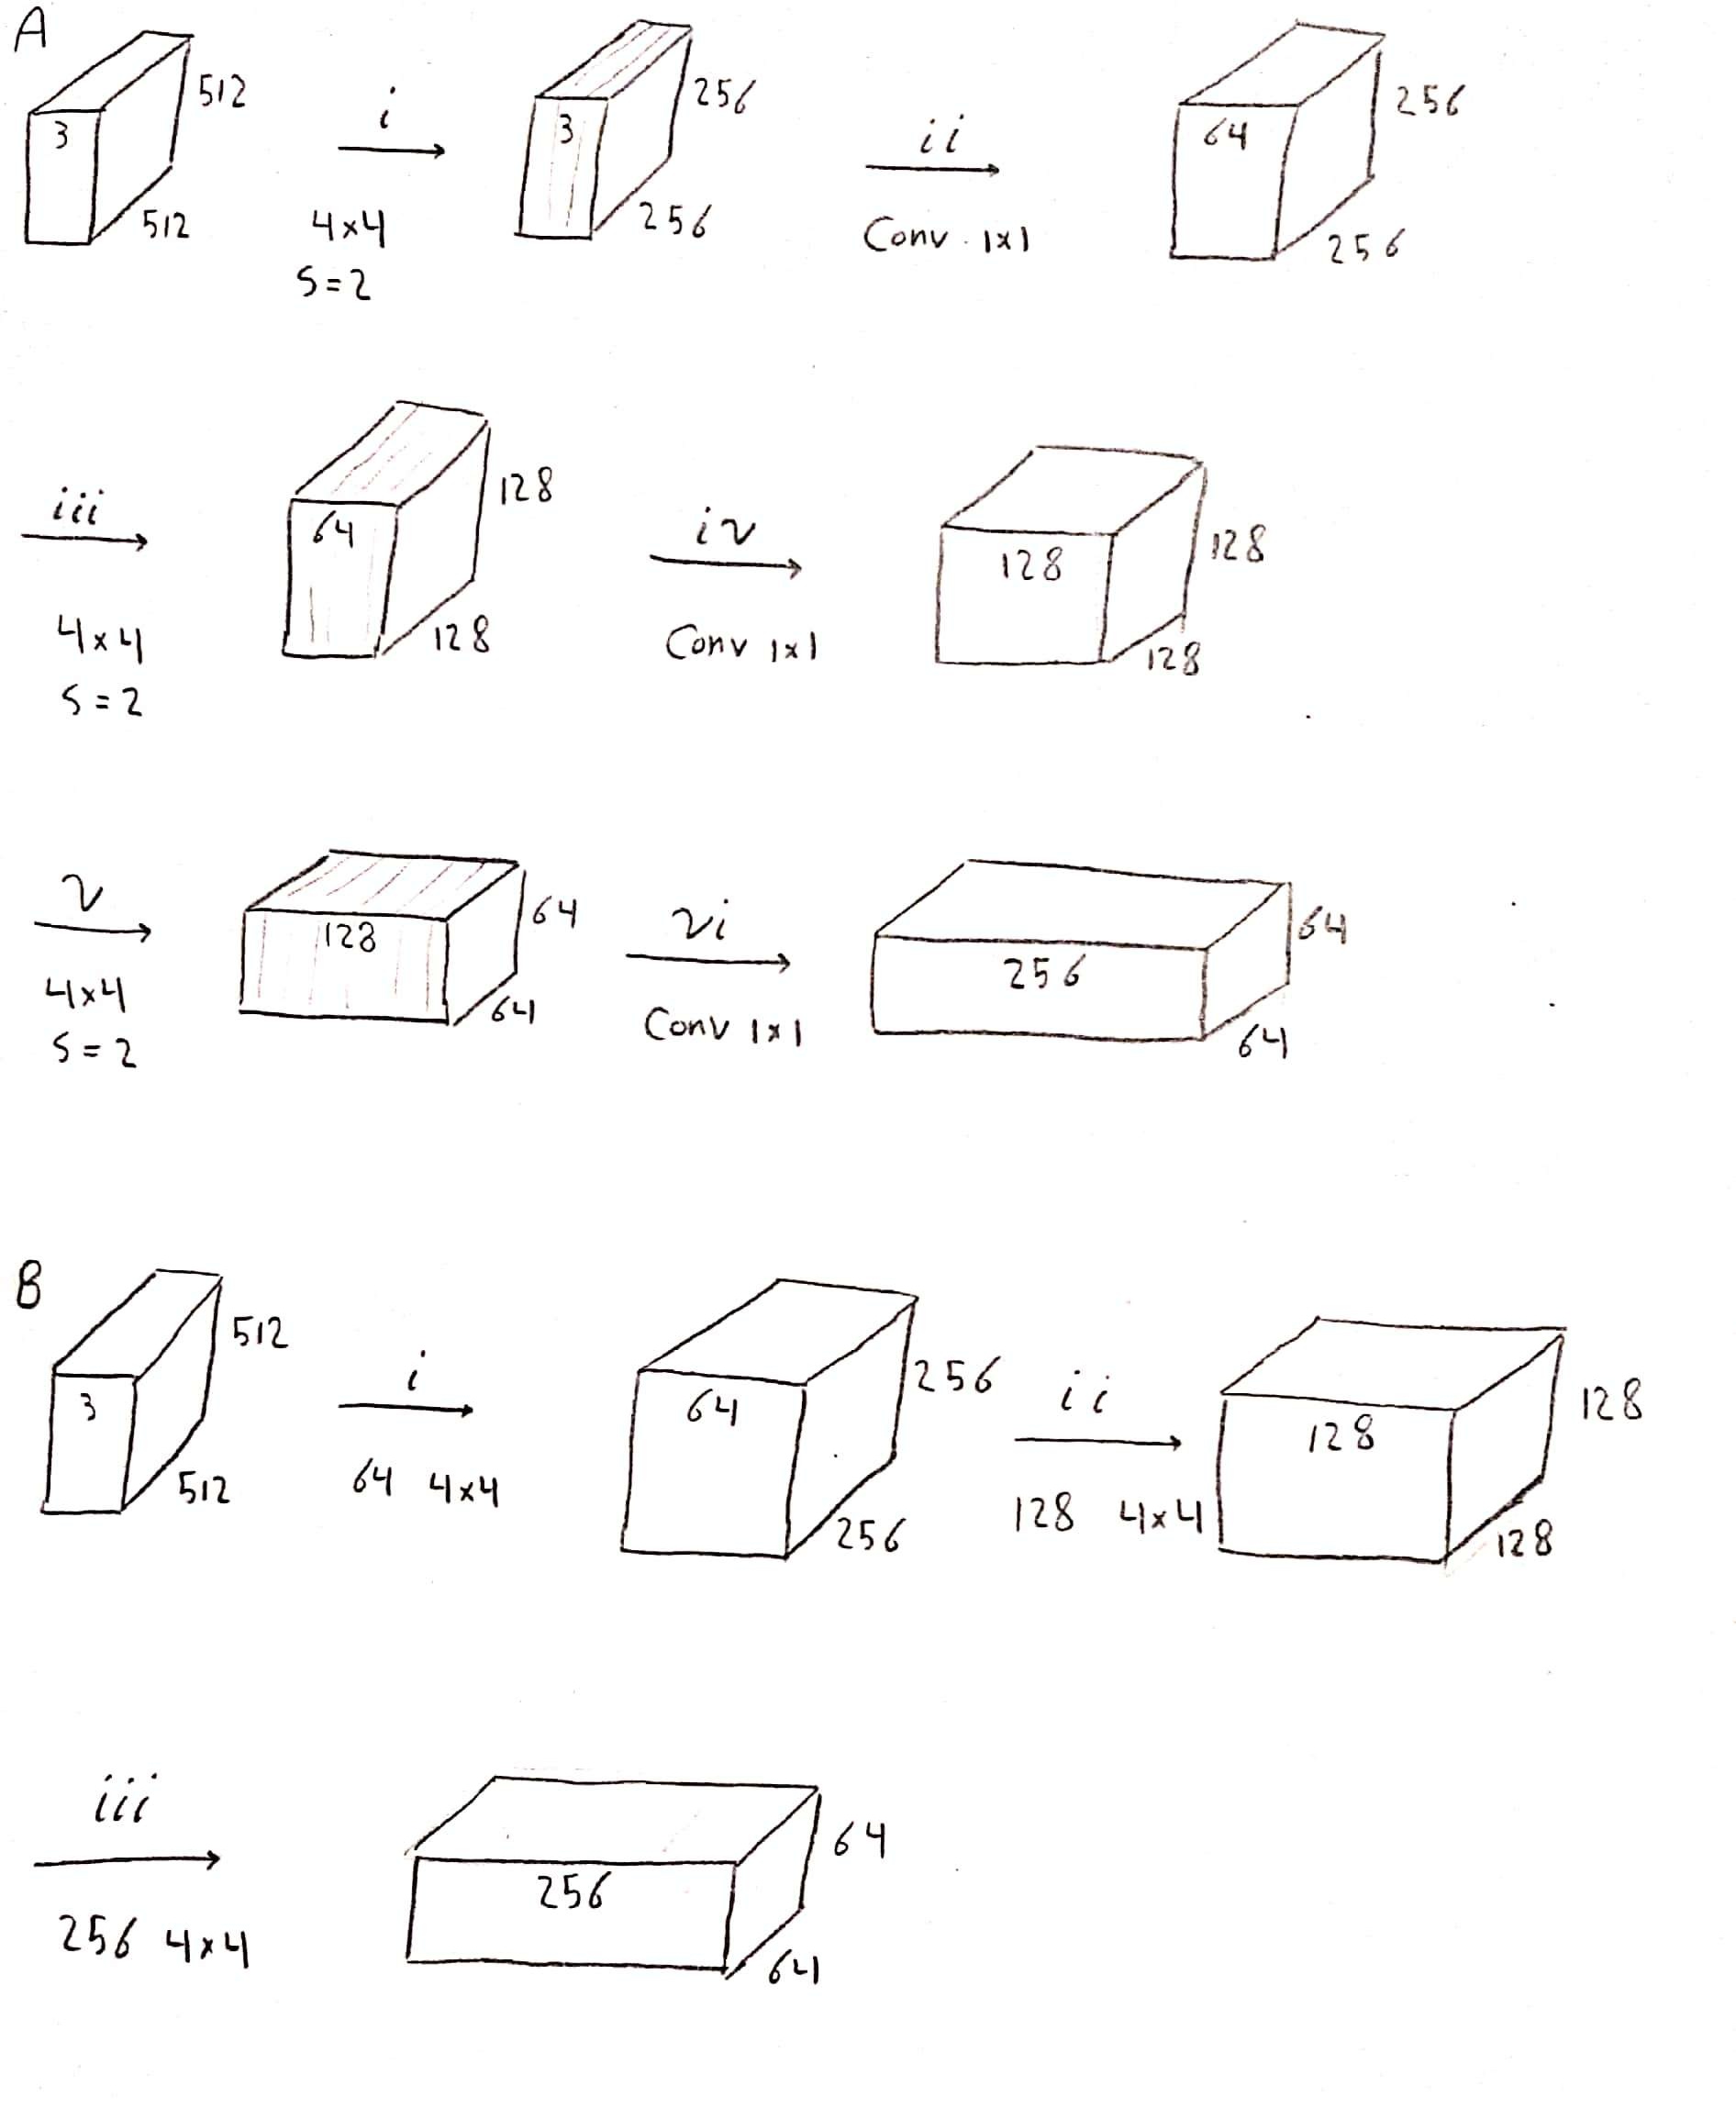 A
512
3
512
i
4x4
S=2
256
3
256
ii
Conv 1x1
256
64
256
iii
4x4
S=2
128
64
128
iv
Conv 1x1
128
128
128
v
4x4
S=2
64
128
64
vi
Conv 1x1
64
256
64
B
512
3
512
i
64 4x4
256
64
256
ii
128 4x4
128
128
128
iii
256 4x4
64
256
64